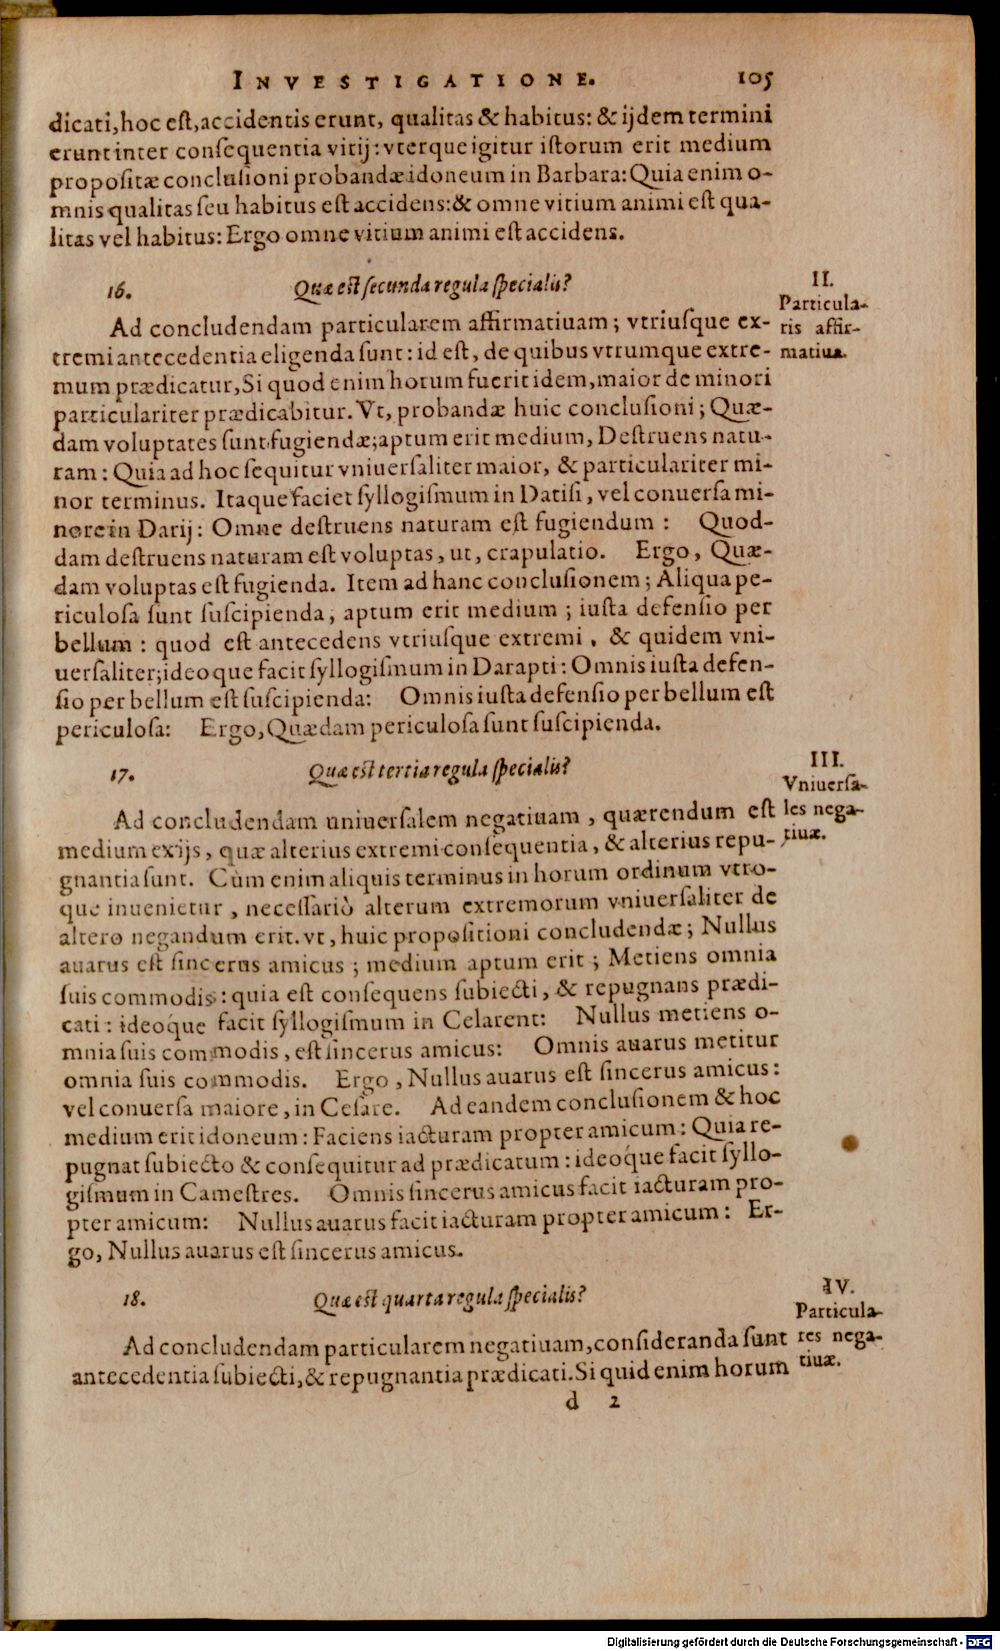 INVESTIGATIONE. 105
dicati, hoc eſt, accidentis erunt, qualitas & habitus: & ijdem termini
erunt inter conſequentia vitij: vterque igitur iſtorum erit medium
propoſitæ concluſioni probandæ idoneum in Barbara: Quia enim o-
mnis qualitas ſeu habitus eſt accidens: & omne vitium animi eſt qua-
litas vel habitus: Ergo omne vitium animi eſt accidens.
16. Quæ eſt ſecunda regula ſpecialis?
II.
Particula-
ris affir-
matiua.
Ad concludendam particularem affirmatiuam; vtriuſque ex-
tremi antecedentia eligenda ſunt: id eſt, de quibus vtrumque extre-
mum prædicatur, Si quod enim horum fuerit idem, maior de minori
particulariter prædicabitur. Vt, probandæ huic concluſioni; Quæ-
dam voluptates ſunt fugiendæ; aptum erit medium, Deſtruens natu-
ram: Quia ad hoc ſequitur vniuerſaliter maior, & particulariter mi-
nor terminus. Itaque faciet ſyllogiſmum in Datiſi, vel conuerſa mi-
nore in Darij: Omne deſtruens naturam eſt fugiendum: Quod-
dam deſtruens naturam eſt voluptas, ut, crapulatio. Ergo, Quæ-
dam voluptas eſt fugienda. Item ad hanc concluſionem; Aliqua pe-
riculoſa ſunt ſuſcipienda, aptum erit medium; iuſta defenſio per
bellum: quod eſt antecedens vtriuſque extremi, & quidem vni-
uerſaliter; ideoque facit ſyllogiſmum in Darapti: Omnis iuſta defen-
ſio per bellum eſt ſuſcipienda: Omnis iuſta defenſio per bellum eſt
periculoſa: Ergo, Quædam periculoſa ſunt ſuſcipienda.
17. Quæ eſt tertia regula ſpecialis?
III.
Vniuerſa-
les nega-
tiuæ.
Ad concludendam uniuerſalem negatiuam, quærendum eſt
medium ex ijs, quæ alterius extremi conſequentia, & alterius repu-
gnantia ſunt. Cùm enim aliquis terminus in horum ordinum vtro-
que inuenietur, neceſſariò alterum extremorum vniuerſaliter de
altero negandum erit. vt, huic propoſitioni concludendæ; Nullus
auarus eſt ſincerus amicus; medium aptum erit; Metiens omnia
ſuis commodis: quia eſt conſequens ſubiecti, & repugnans prædi-
cati: ideoq́ue facit ſyllogiſmum in Celarent: Nullus metiens o-
mnia ſuis commodis, eſt ſincerus amicus: Omnis auarus metitur
omnia ſuis commodis. Ergo, Nullus auarus eſt ſincerus amicus:
vel conuerſa maiore, in Ceſare. Ad eandem concluſionem & hoc
medium erit idoneum: Faciens iacturam propter amicum: Quia re-
pugnat ſubiecto & conſequitur ad prædicatum: ideoq́ue facit ſyllo-
giſmum in Cameſtres. Omnis ſincerus amicus facit iacturam pro-
pter amicum: Nullus auarus facit iacturam propter amicum: Er-
go, Nullus auarus eſt ſincerus amicus.
18. Quæ eſt quarta regula ſpecialis?
IV.
Particula-
res nega-
tiuæ.
Ad concludendam particularem negatiuam, conſideranda ſunt
antecedentia ſubiecti, & repugnantia prædicati. Si quid enim horum
d 2
Digitalisierung gefördert durch die Deutsche Forschungsgemeinschaft - DFG